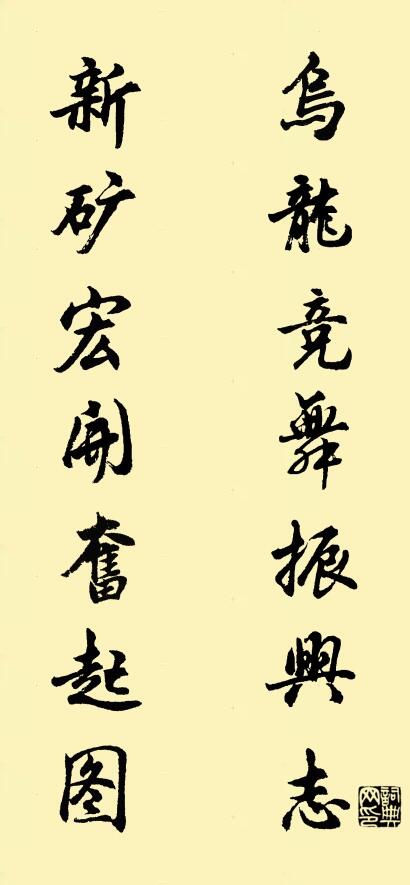 烏龍竞舞振興志
新矿宏開奮起图
詞典网印